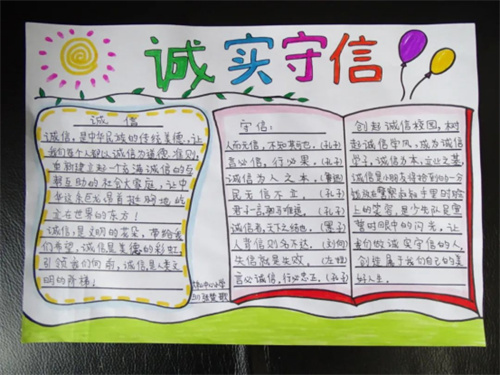 诚实守信
诚信
诚信,是中华民族的传统美德,让
我们每个人都以诚信为道德准则,
重新建立起一个充满诚信的与
互助的社会大家庭,让中
在世界的东方!
诚信,是文明的花朵,带给我
们希望,诚信是美德的彩虹,
引领我们向前,诚信是人类文
明的
守信:
人而无信,不知其可也,(孔子)
言必信,行必果,(孔子)
诚信为人之本,(鲁迅)
民无信不立,(孔子)
君子一言驷马难追。
诚信者,天下之结也,(墨子)
人背信则名不达,(刘向)
失信就是失败,(左拉)
言必诚信,行必忠正,(孔子)
创起诚信校园,树
起诚信学风,成为诚信
学子,诚信为本,立业之基,
诚信是小朋友得拾到的一分
钱放在警察叔叔手里时脸
上的笑容,是少先队员宣
誓时眼中的闪光,让
我们做诚实守信的人,
创造属于我们自己的美
好人生。